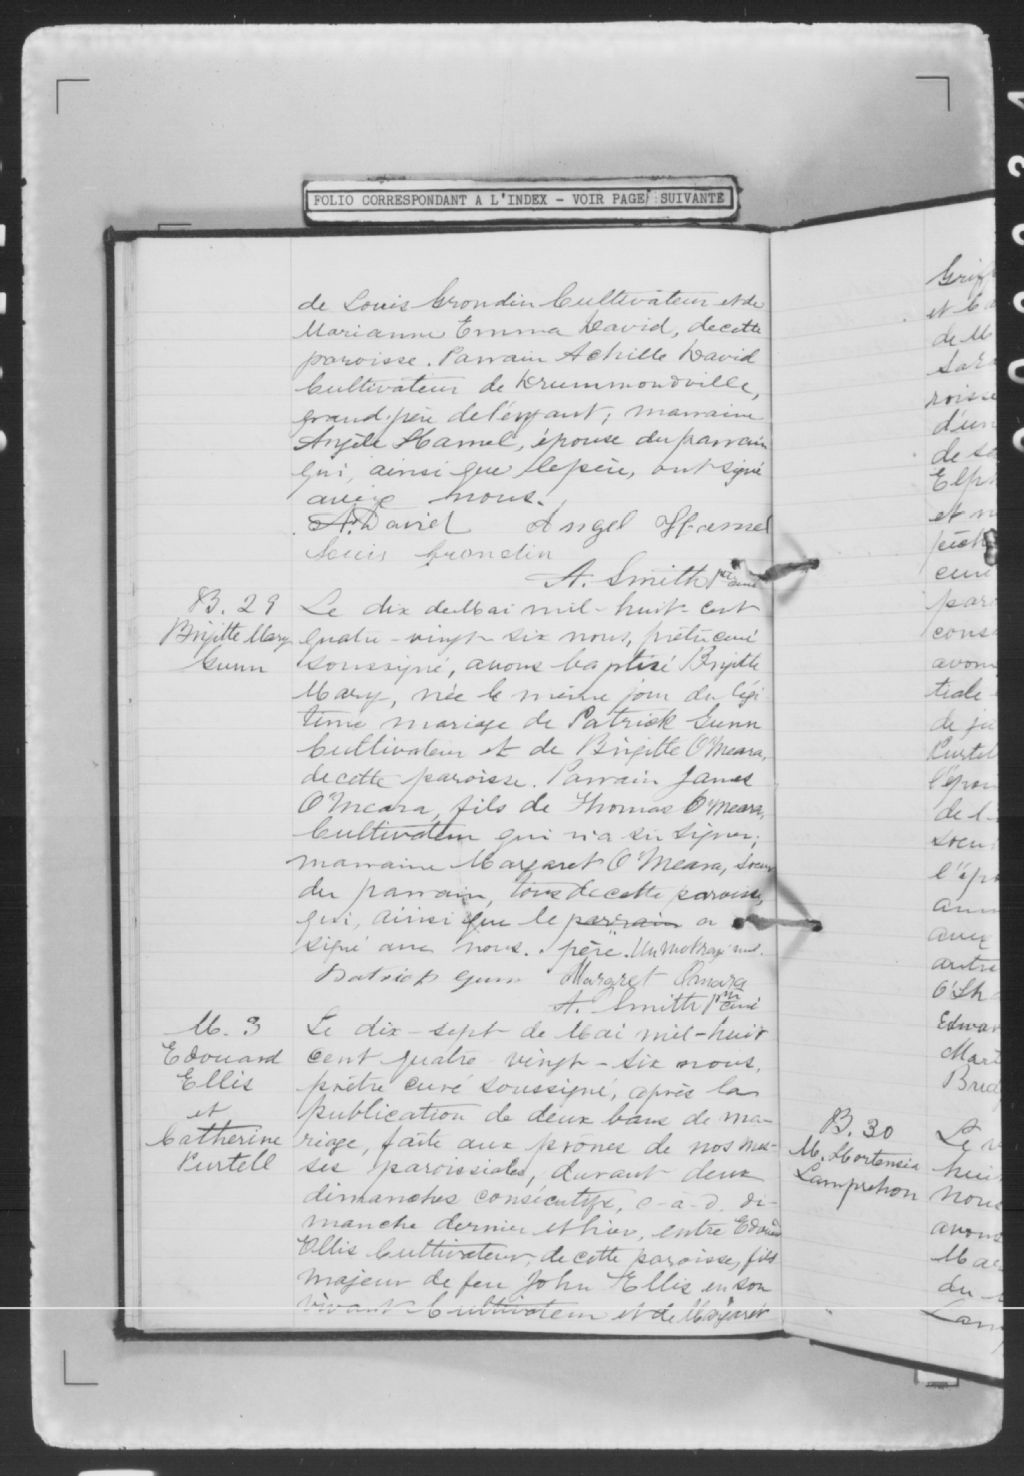 FOLIO CORRESPONDANT A L'INDEX - VOIR PAGE SUIVANTE
de Louis Grondin Cultivateur et de
Marianne Emma David, de cette
paroisse. Parrain Achille David
Cultivateur de Drummondville,
grand-père de l'enfant; marraine
Angèle Hamel, épouse du parrain
qui, ainsi que le père, ont signé
avec nous.
A. David Angel Hamel
Louis Grondin
A. Smith ptre curé
B. 29
Brigitte Mary
Gunn
Le dix de Mai mil-huit-cent
quatre-vingt-six nous, prêtre curé
soussigné, avons baptisé Brigitte
Mary, née le même jour du légi-
time mariage de Patrick Gunn
Cultivateur et de Brigitte O'Meara,
de cette paroisse. Parrain James
O'Meara, fils de Thomas O'Meara,
Cultivateur qui n'a su signer;
marraine Margaret O'Meara, soeur
du parrain, tous de cette paroisse,
qui, ainsi que le parrain a
signé avec nous. père. Un mot rayé nul.
Patrick Gunn Margaret Omara
A. Smith ptre curé
M. 3
Edouard
Ellis
et
Catherine
Purtell
Le dix-sept de Mai mil-huit
cent quatre-vingt-six nous,
prêtre curé soussigné, après la
publication de deux bans de ma-
riage, faite aux prônes de nos mes-
ses paroissiales, durant deux
dimanches consécutifs, c-à-d. di-
manche dernier et hier, entre Edouard
Ellis Cultivateur, de cette paroisse, fils
majeur de feu John Ellis en son
vivant Cultivateur et de Margaret
et
de M
roisse
d'un
de
et
curé
avons
de
de
soeur
avec
O'Sh
Edwar
Mart
Brid
B. 30
M. Hortensia
Lamprehon
Le
huit
nous
avons
Mar
du
Lam